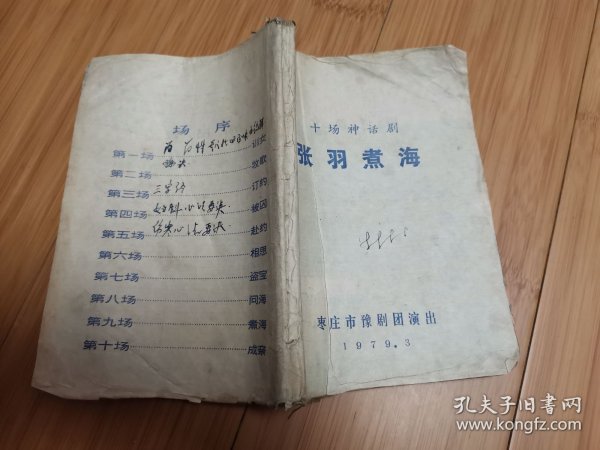 场序
第一场 训女
第二场 牧歌
第三场 三字经 订约
第四场 妇科心法要诀 被囚
第五场 伤寒心法要诀 赴约
第六场 相思
第七场 盗宝
第八场 问海
第九场 煮海
第十场 成亲
十场神话剧
张羽煮海
枣庄市豫剧团演出
1979.3
孔夫子旧书网
www.kongfz.com